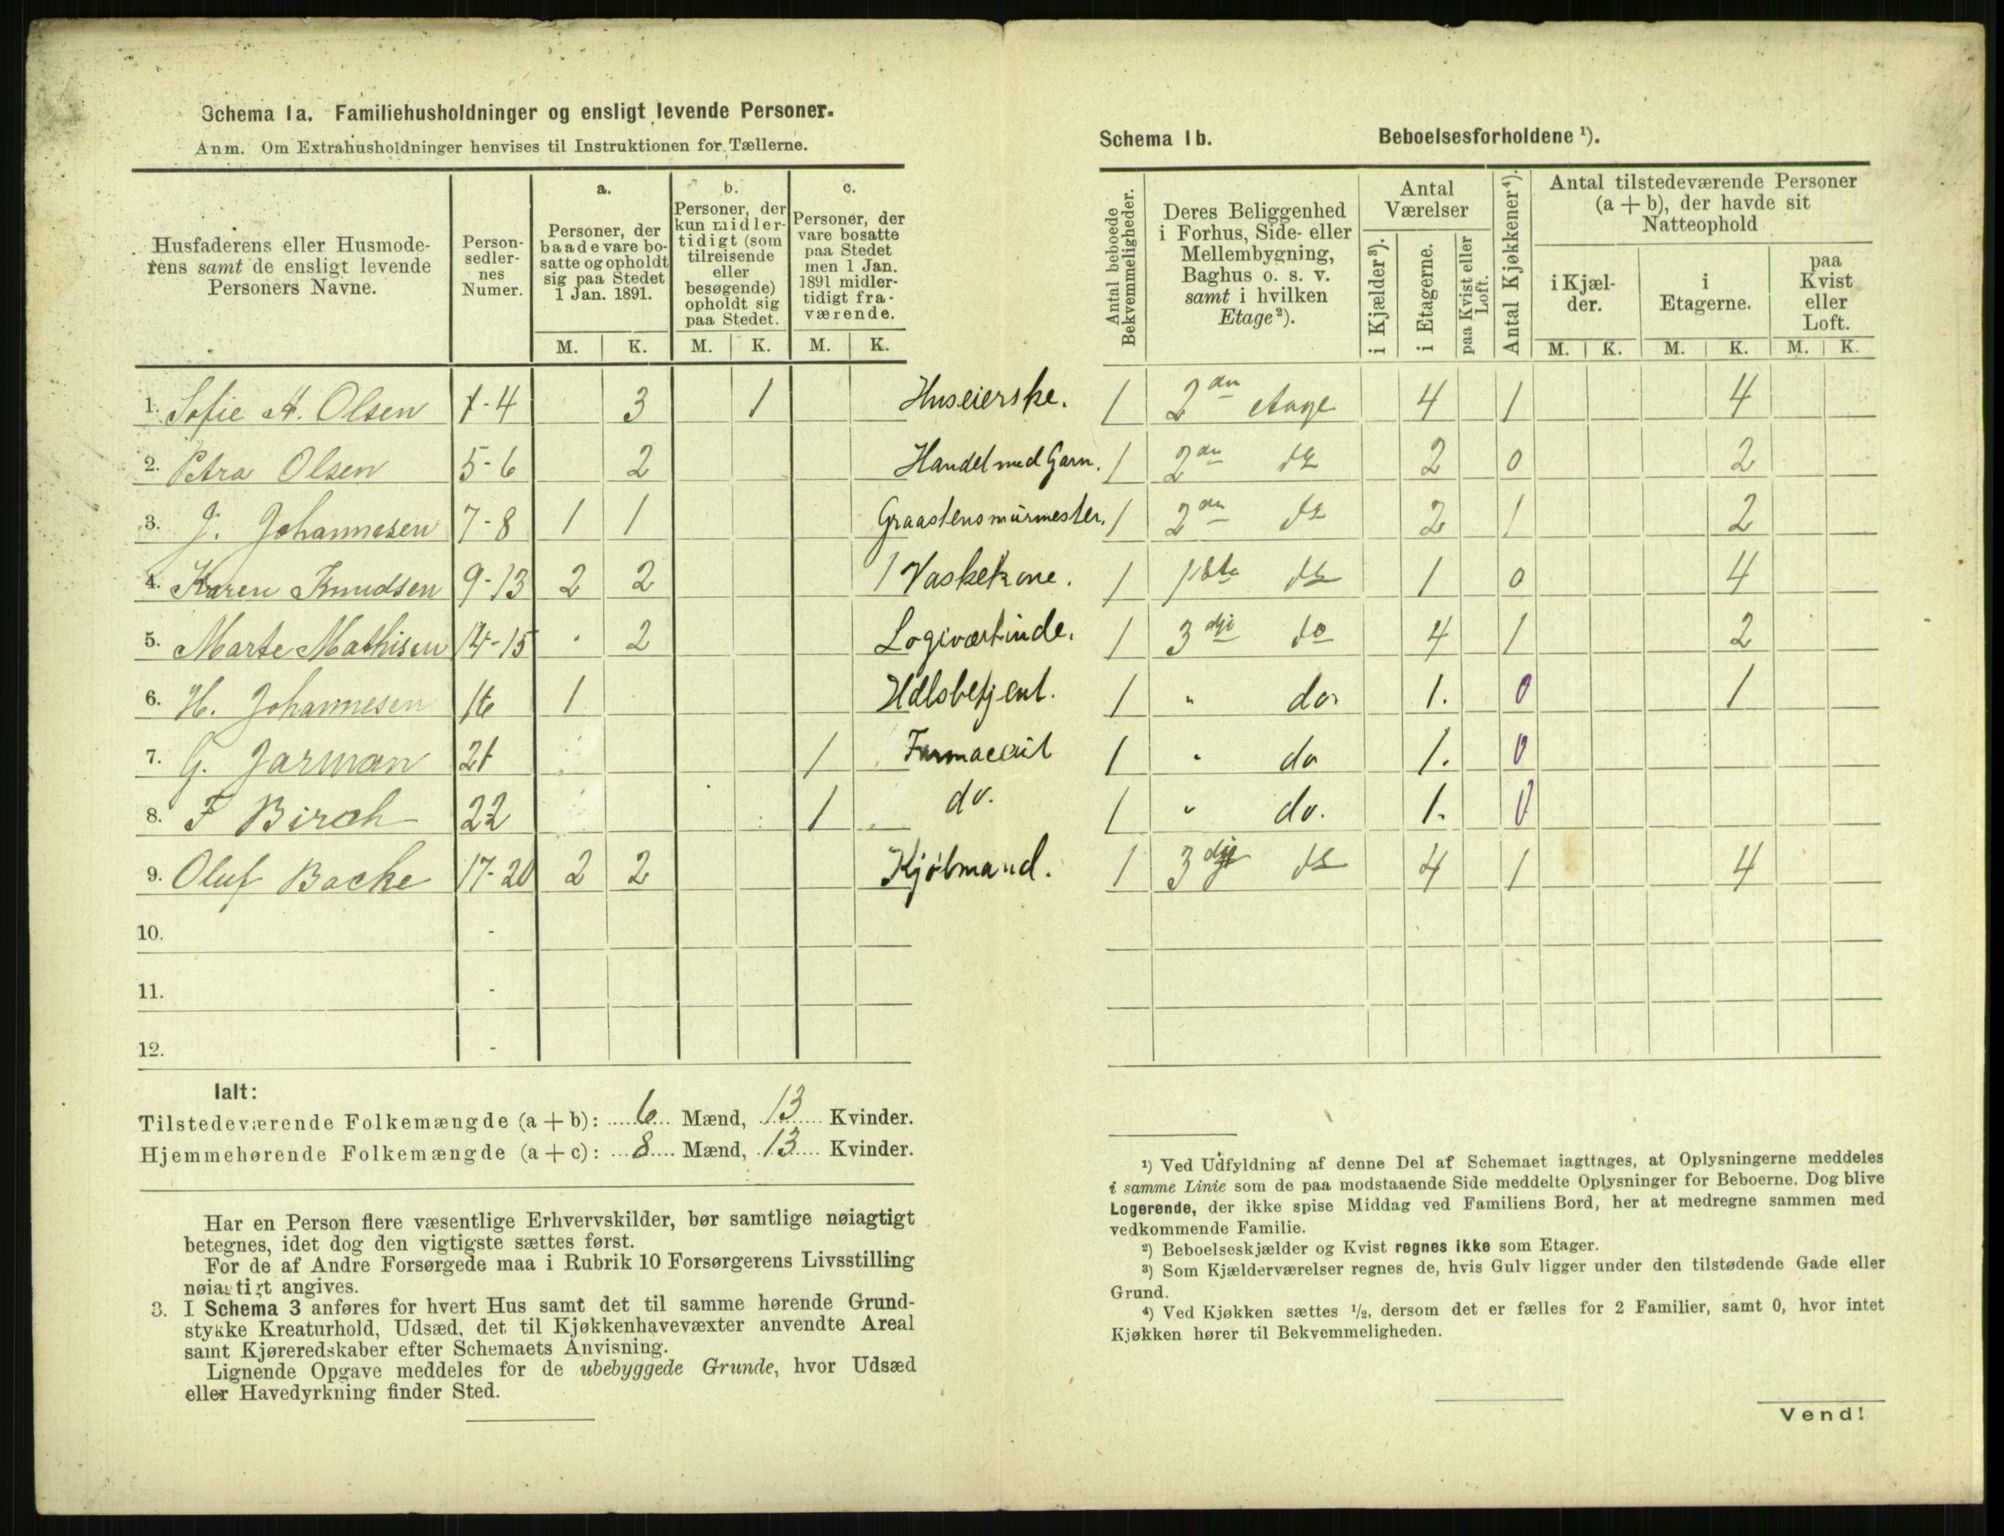 Schema 1a. Familiehusholdninger og ensligt levende Personer.
Anm. Om Extrahusholdninger henvises til Instruktionen for Tællerne.
Husfaderens eller Husmode-
rens samt de ensligt levende
Personers Navne.
Person-
sedler-
nes
Numer.
a.
Personer, der
baade vare bo-
satte og opholdt
sig paa Stedet
1 Jan. 1891.
b.
Personer, der
kun midler-
tidigt (som
tilreisende
eller
besøgende)
opholdt sig
paa Stedet.
c.
Personer, der
vare bosatte
paa Stedet
men 1 Jan.
1891 midler-
tidigt fra-
værende.
M. K. M. K. M. K.
1. Sofie A. Olsen 1-4 3 1 Huseierske.
2. Petra Olsen 5-6 2 Handel med Garn.
3. J. Johannesen 7-8 1 1 Graastensmurmester.
4. Karen Knudsen 9-13 2 2 1 Vaskekone.
5. Marte Mathisen 14-15 . 2 Logiværtinde.
6. H. Johannesen 16 1 Hdlsbetjent.
7. G. Jarman 21 1 Farmaceut
8. F Birch 22 1 do.
9. Oluf Backe 17-20 2 2 Kjøbmand.
10. -
11. -
12. -
Ialt:
Tilstedeværende Folkemængde (a + b): 6 Mænd, 13 Kvinder.
Hjemmehørende Folkemængde (a + c): 8 Mænd, 13 Kvinder.
Har en Person flere væsentlige Erhvervskilder, bør samtlige nøiagtigt
betegnes, idet dog den vigtigste sættes først.
For de af Andre Forsørgede maa i Rubrik 10 Forsørgerens Livsstilling
nøiagtigt angives.
3. I Schema 3 anføres for hvert Hus samt det til samme hørende Grund-
stykke Kreaturhold, Udsæd, det til Kjøkkenhavevæxter anvendte Areal
samt Kjøreredskaber efter Schemaets Anvisning.
Lignende Opgave meddeles for de ubebyggede Grunde, hvor Udsæd
eller Havedyrkning finder Sted.
Schema 1b. Beboelsesforholdene ¹).
Antal beboede
Bekvemmeligheder.
Deres Beliggenhed
i Forhus, Side- eller
Mellembygning,
Baghus o. s. v.
samt i hvilken
Etage²).
Antal
Værelser
i Kjælder³).
i Etagerne.
paa Kvist eller
Loft.
Antal Kjøkkener⁴).
Antal tilstedeværende Personer
(a + b), der havde sit
Natteophold
i Kjæl-
der.
i
Etagerne.
paa
Kvist
eller
Loft.
M. K. M. K. M. K.
1 2den Etage 4 1 4
1 2den do 2 0 2
1 2den do 2 1 2
1 1ste do 1 0 4
1 3dje do 4 1 2
1 " do. 1. 0 1
1 " do 1. 0
1 " do. 1. 0
1 3dje do 4 1 4
¹) Ved Udfyldning af denne Del af Schemaet iagttages, at Oplysningerne meddeles
i samme Linie som de paa modstaaende Side meddelte Oplysninger for Beboerne. Dog blive
Logerende, der ikke spise Middag ved Familiens Bord, her at medregne sammen med
vedkommende Familie.
²) Beboelseskjælder og Kvist regnes ikke som Etager.
³) Som Kjælderværelser regnes de, hvis Gulv ligger under den tilstødende Gade eller
Grund.
⁴) Ved Kjøkken sættes ½, dersom det er fælles for 2 Familier, samt 0, hvor intet
Kjøkken hører til Bekvemmeligheden.
Vend!